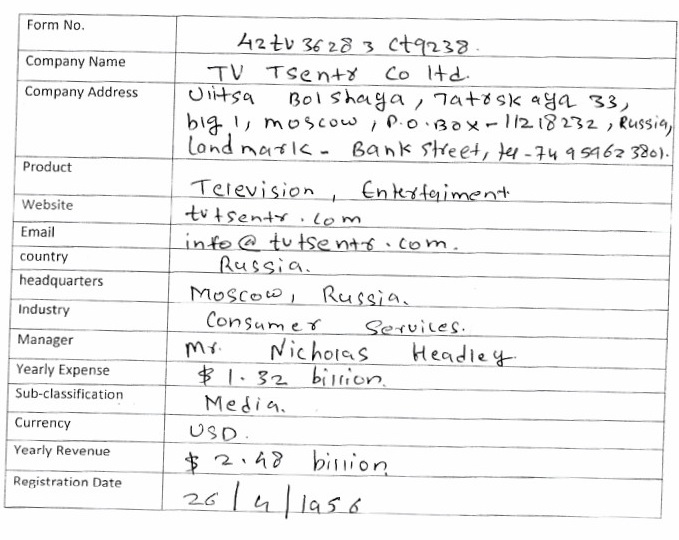 Form No. 42tv36283 ct9238.
Company Name TV Tsentr Co ltd.
Company Address Ulitsa Bolshaya, Tatrskaya 33,
big 1, moscow, P.O.Box-11218232, Russia,
Landmark - Bank street, tel-74959623801.
Product Television, Entertaiment
Website tvtsentr.com
Email info@tvtsentr.com.
country Russia.
headquarters Moscow, Russia.
Industry Consumer Services.
Manager Mr. Nicholas Headley.
Yearly Expense $ 1.32 billion.
Sub-classification Media.
Currency USD.
Yearly Revenue $ 2.48 billion
Registration Date 26/4/1956